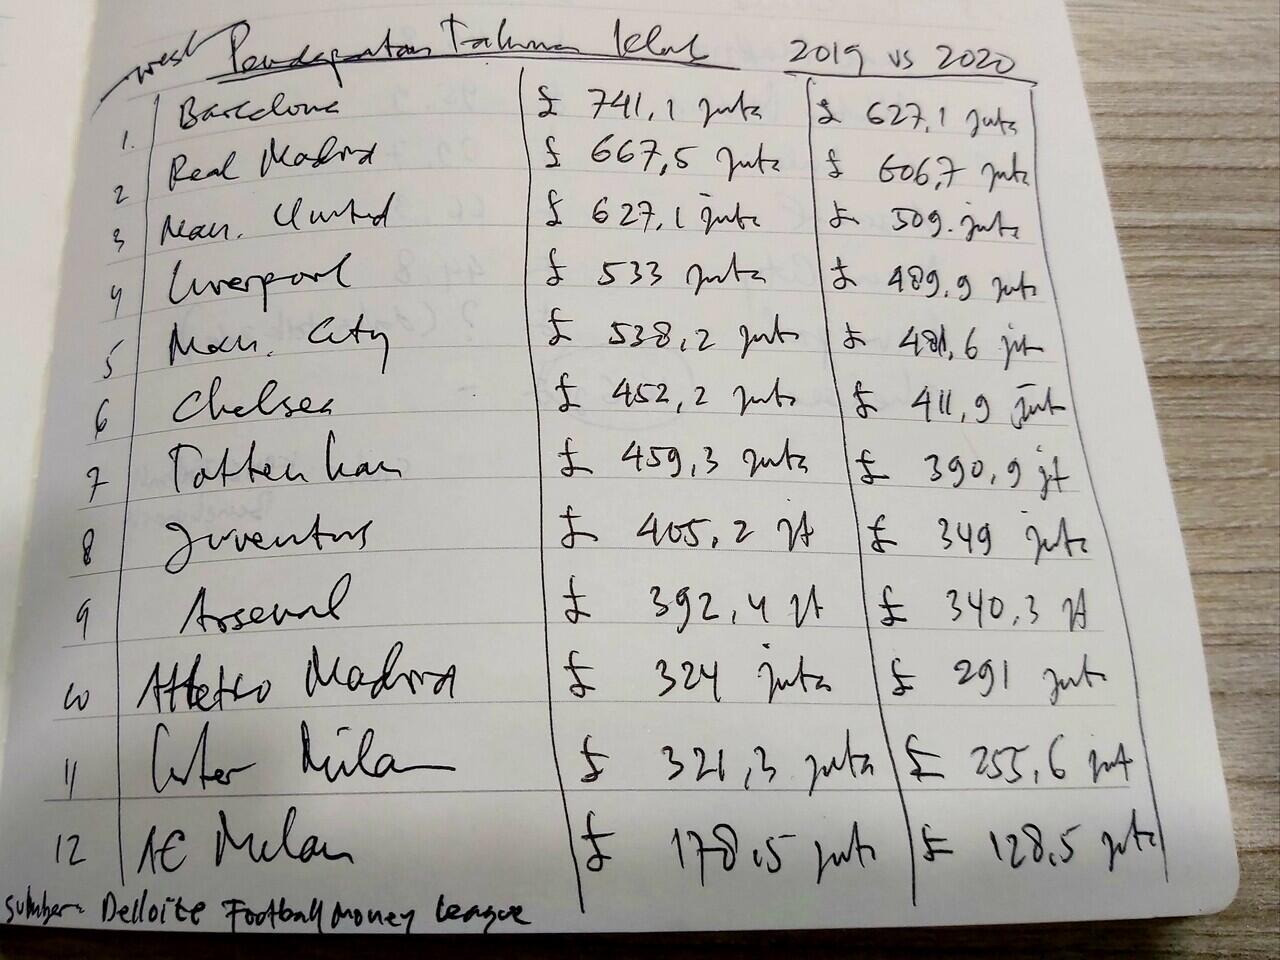 Pendapatan Tahunan Klub 2019 vs 2020
1. Barcelona £ 741,1 juta £ 627,1 juta
2 Real Madrid £ 667,5 juta £ 606,7 juta
3 Man. United £ 627,1 juta £ 509. juta
4 Liverpool £ 533 juta £ 489,9 juta
5 Man. City £ 538,2 juta £ 481,6 jt
6 Chelsea £ 452,2 juta £ 411,9 jut
7 Tottenham £ 459,3 juta £ 390,9 jt
8 Juventus £ 405,2 jt £ 349 juta
9 Arsenal £ 392,4 jt £ 340,3 jt
10 Atletico Madrid £ 324 juta £ 291 juta
11 Inter Milan £ 321,3 juta £ 255,6 jut
12 AC Milan £ 178,5 juta £ 128,5 juta
sumber: Delloite Football Money League